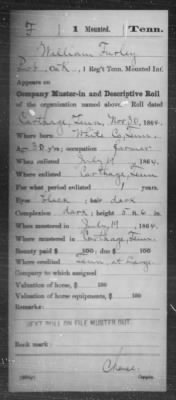 F 1 Mounted. Tenn.
William Furley
Pvt., 1 Reg't Tenn. Mounted Inf.
Appears on
Company Muster-in and Descriptive Roll
of the organization named above. Roll dated
Carthage, Tenn, Nov 30, 1864.
Where born White Co, Tenn.
Age 30 y'rs; occupation farmer
When enlisted July 19, 1864.
Where enlisted Carthage, Tenn
For what period enlisted 1 years.
Eyes black; hair dark
Complexion dark; height 5 ft. 6 in.
When mustered in July 19, 1864.
Where mustered in Carthage, Tenn.
Bounty paid $ 100; due $ 100
Where credited Tenn, at large.
Company to which assigned
Valuation of horse, $ 100
Valuation of horse equipments, $ 100
Remarks:
NEXT ROLL ON FILE MUSTER OUT.
Book mark:
Chase.
Copyist.